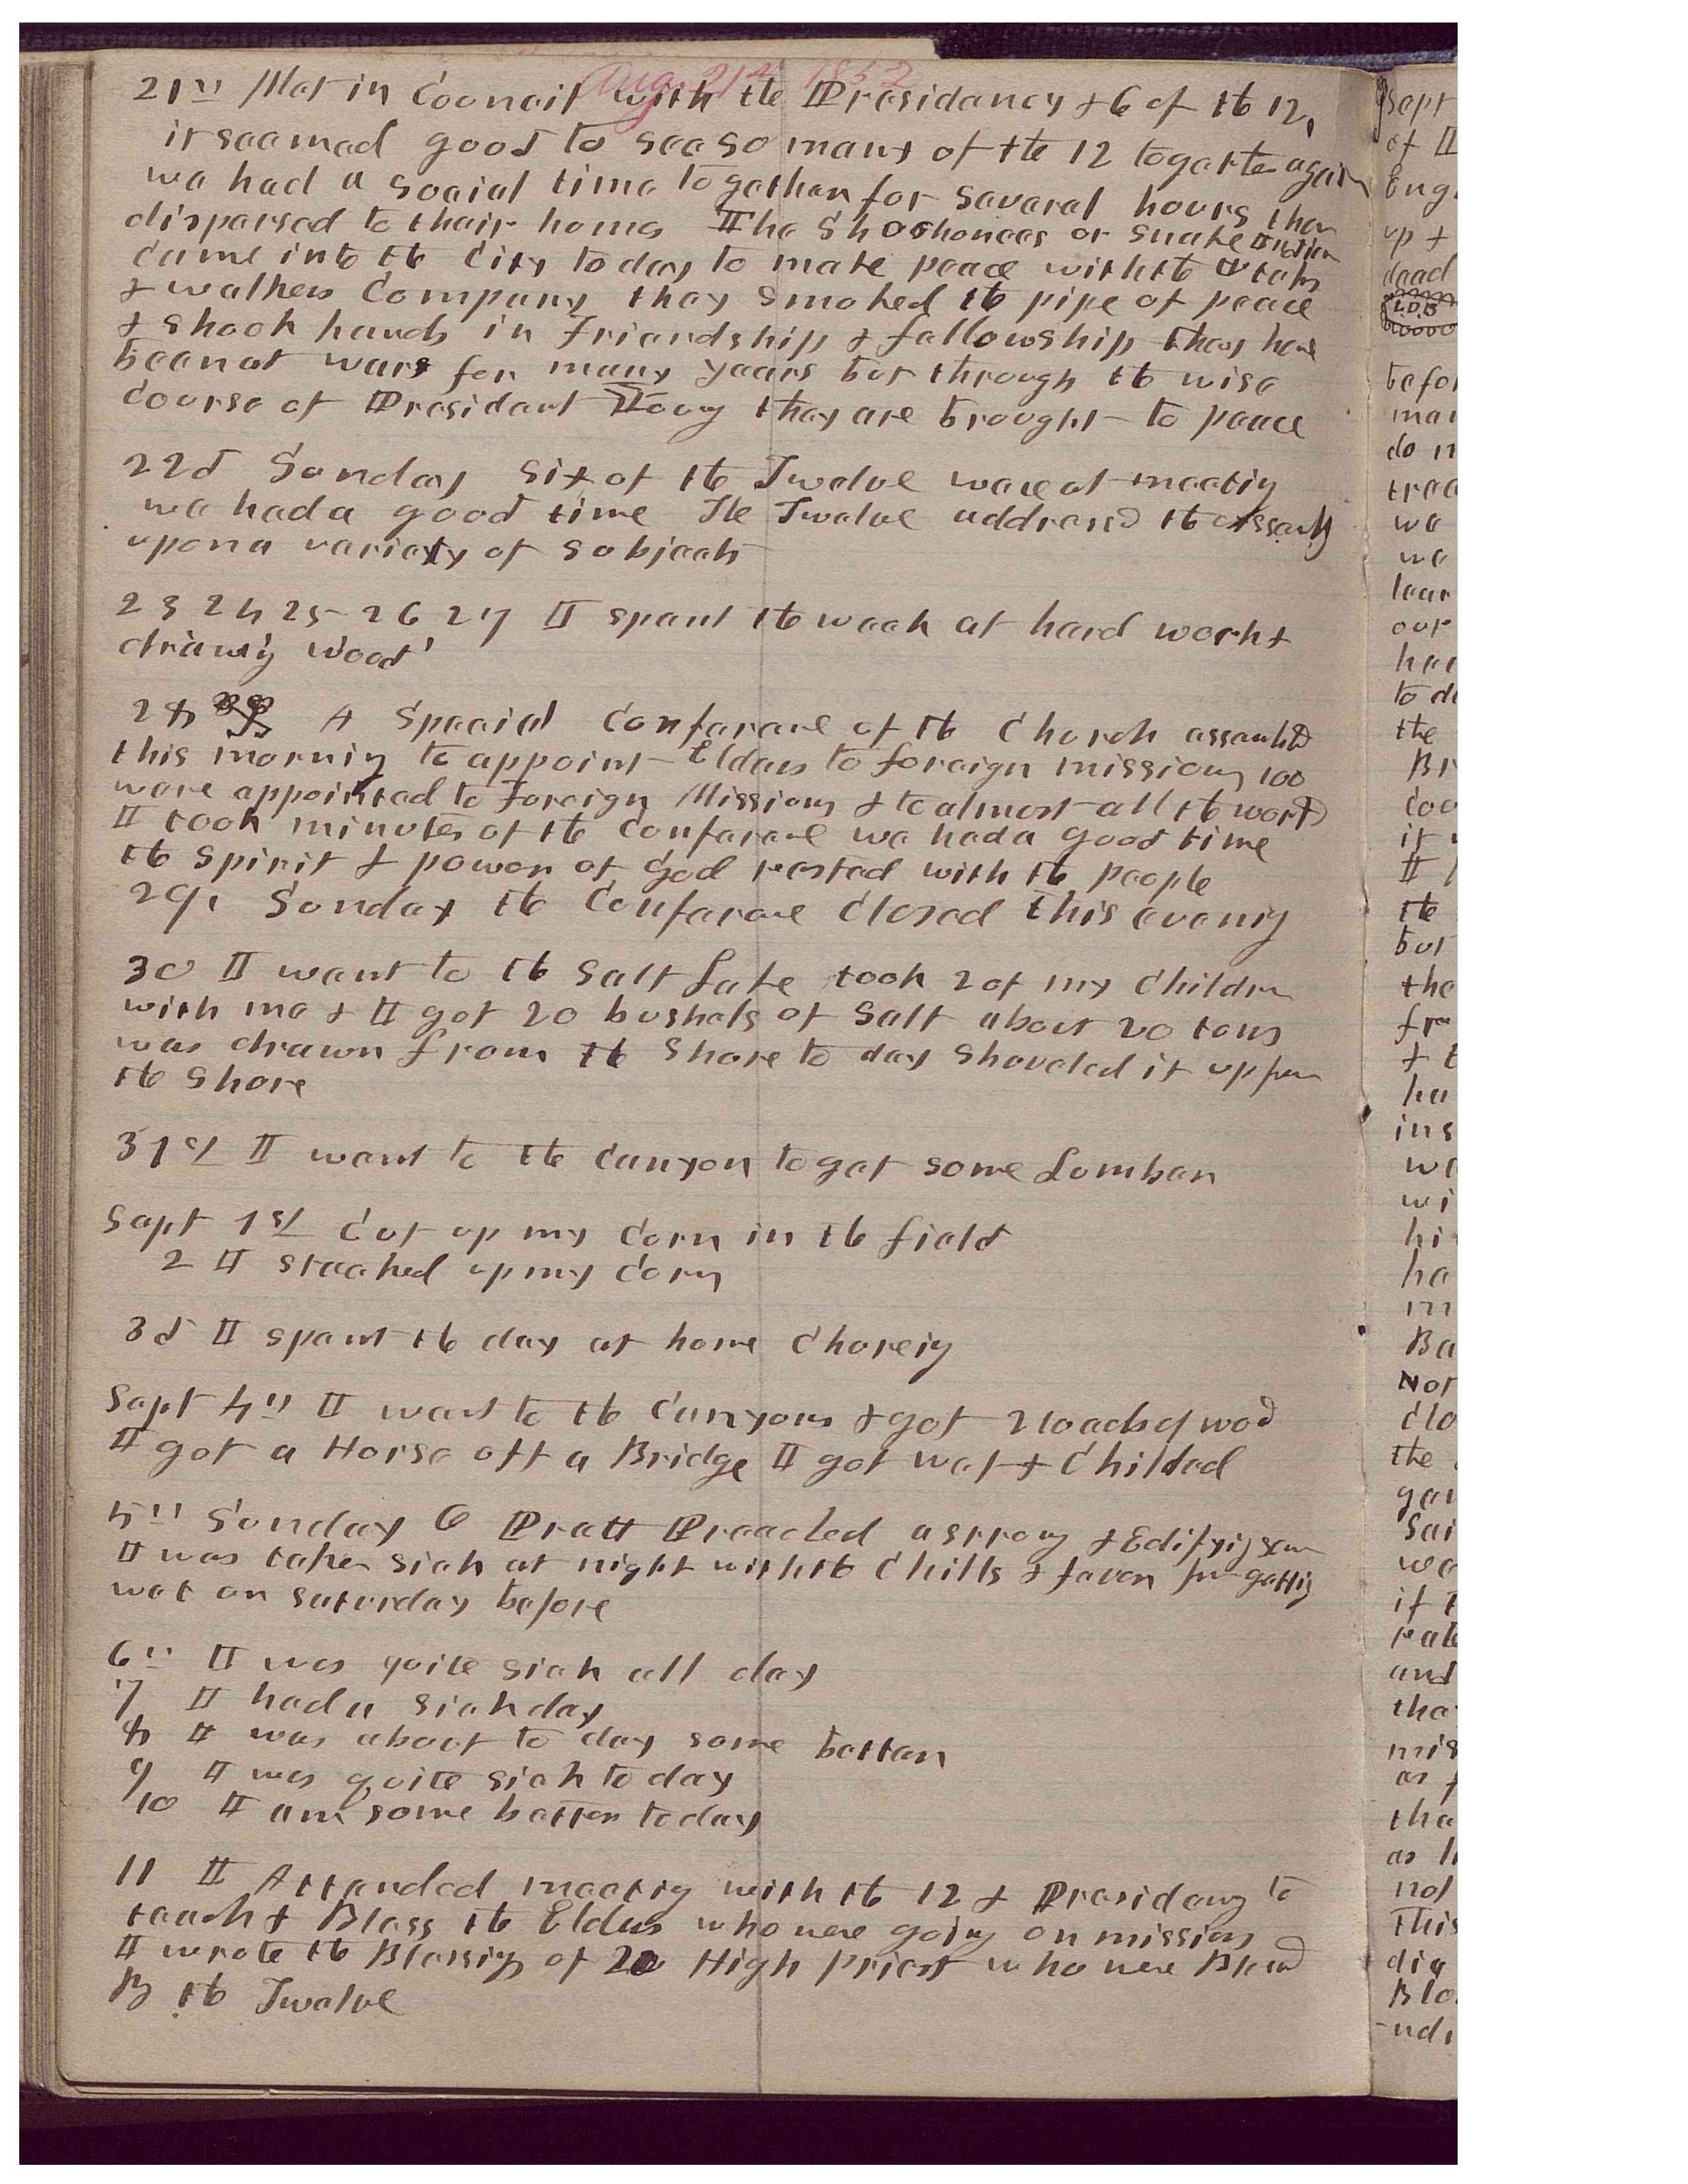 Aug. 21st 1852
21st Met in Council with the Presidency & 6 of the 12,
it seemed good to see so many of the 12 together again
we had a social time together for several hours then
dispersed to their homes The Shoshonees or Snake Indian
came into the City to day to make peace with the Utahs
& walkers Company they smoked the pipe of peace
& shook hands in Friendship & fellowship they have
been at wars for many years but through the wise
course of President Young they are brought to peace
22d Sunday Six of the Twelve ware at meeting
we had a good time The Twelve addressed the assembly
upon a variety of subjects
23 24 25 26 27 I spent the week at hard work &
drawing wood
28 A Special Conferance of the Church assembled
this morning to appoint Elders to foreign missions 100
ware appointed to Foreign Missions & to almost all the world
I took minutes of the Conferance we had a good time
the spirit & power of God rested with the people
29. Sunday the Conferance Closed this evening
30 I went to the Salt Lake took 2 of my children
with me & I got 20 bushels of Salt about 20 tons
was drawn from the Shore to day Shoveled it up from
the Shore
31st I went to the Canyon to get some Lumber
Sept 1st Cut up my Corn in the field
2 I stacked up my Corn
3d I spent the day at home Choreing
Sept 4th I went to the Canyons & got 2 loads of wood
I got a Horse off a Bridge I got wet & Chilled
5th Sunday O Pratt Preached a strong & Edifying sermon
I was taken sick at night with the Chills & fever from getting
wet on Saturday before
6th I was quite sick all day
7 I had a sick day
8 I was about to day some better
9 I was quite sick to day
10 I am some better to day
11 I Attended meeting with the 12 & Presidency to
teach & Bless the Elders who were going on missions
I wrote the Blessings of 20 High Priest who were Blessed
By the Twelve
Sept
of I
Eng
up &
dead
L.D.B
befor
man
do n
tree
we
we
lear
our
had
to de
the
Br
Cou
it
I
the
but
the
fro
& t
ha
ins
we
wi
hi
ha
m
Ba
Not
Clo
the
gar
Sai
we
if
rate
and
tha
mis
as
tha
as
not
This
dig
Ble